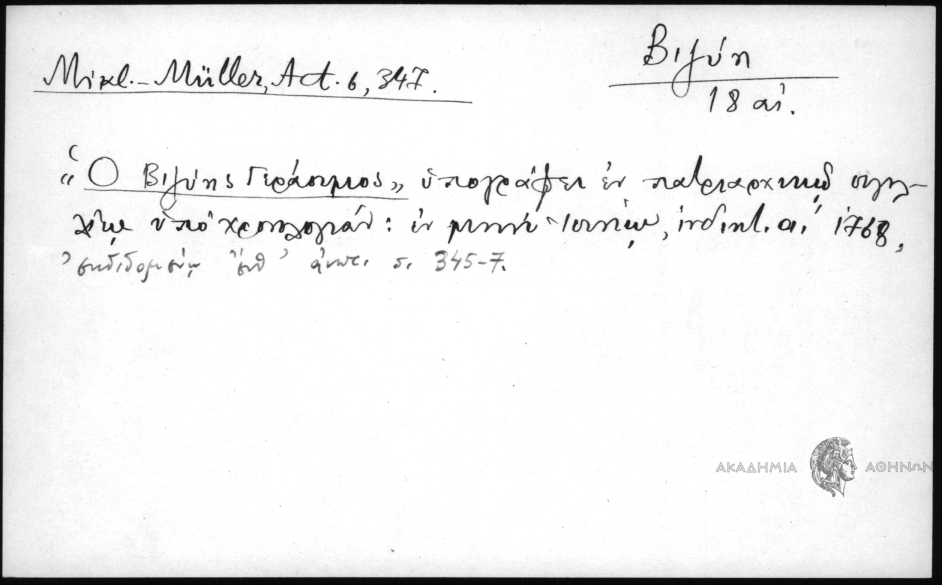 Mikl.-Müller, Act. 6, 347.
Βιζύη
18 αἰ.
«Ὁ Βιζύης Γεράσιμος», ὑπογράφει ἐν πατριαρχικῷ σιγιλ-
λίῳ ὑπὸ χρονολογίαν: ἐν μηνὶ Ἰουνίῳ, ἰνδικτ. α' 1768,
ἐκδιδομένῳ ἀνωτ. σ. 345-7.
ΑΚΑΔΗΜΙΑ ΑΘΗΝΩΝ